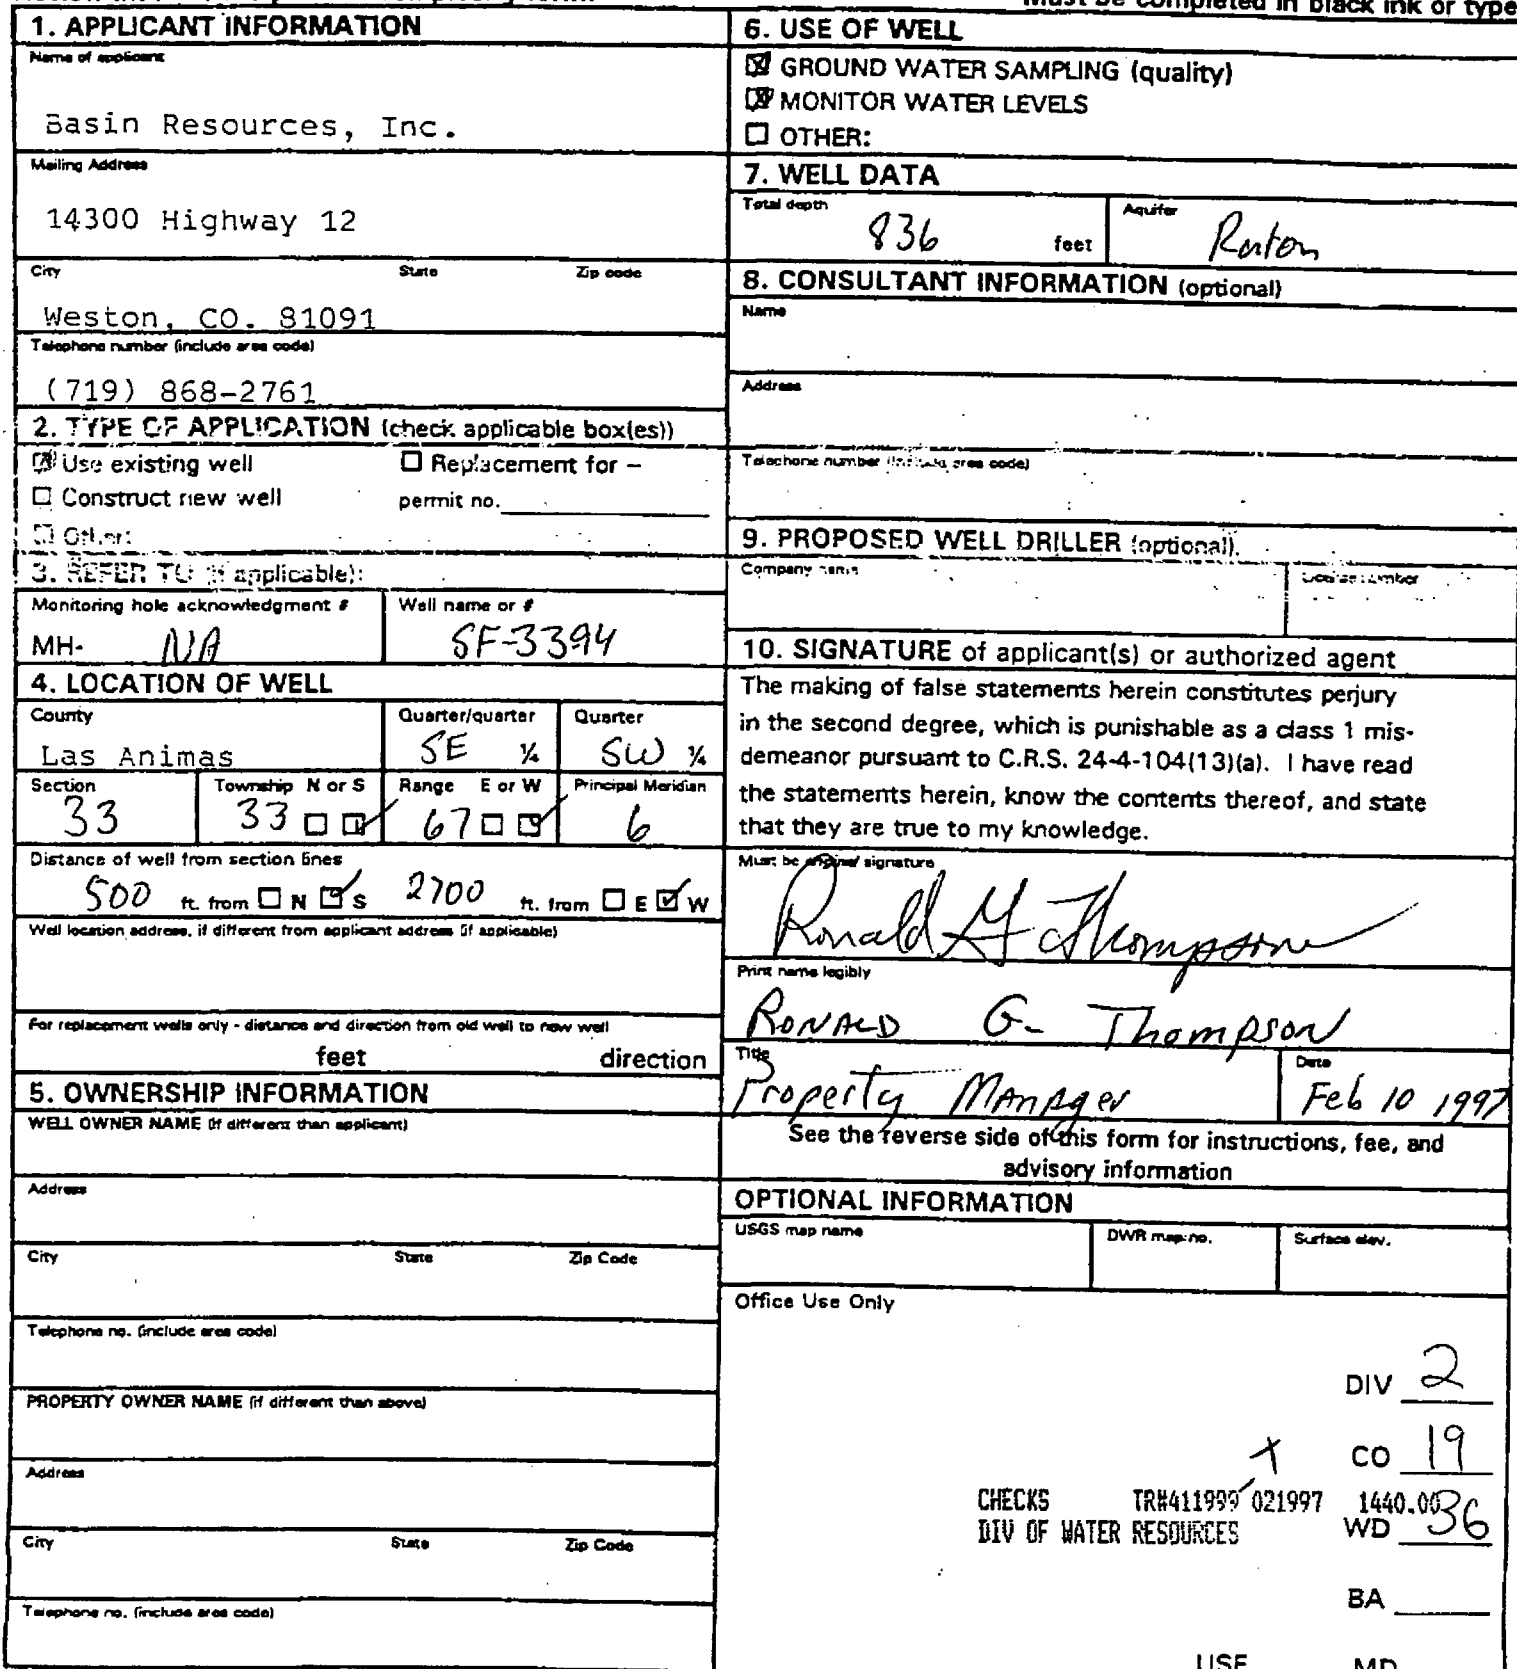 Must be completed in black ink or type
1. APPLICANT INFORMATION
Name of applicant
Basin Resources, Inc.
Mailing Address
14300 Highway 12
City State Zip code
Weston, CO. 81091
Telephone number (include area code)
(719) 868-2761
2. TYPE OF APPLICATION (check applicable box(es))
☒ Use existing well ☐ Replacement for –
☐ Construct new well permit no.
☐ Other:
3. REFER TO (if applicable):
Monitoring hole acknowledgment # Well name or #
MH- NA SF-3394
4. LOCATION OF WELL
County Quarter/quarter Quarter
Las Animas SE ¼ SW ¼
Section Township N or S Range E or W Principal Meridian
33 33 ☐ ☑ 67 ☐ ☑ 6
Distance of well from section lines
500 ft. from ☐ N ☑ S 2700 ft. from ☐ E ☑ W
Well location address, if different from applicant address (if applicable)
For replacement wells only - distance and direction from old well to new well
feet direction
5. OWNERSHIP INFORMATION
WELL OWNER NAME (if different than applicant)
Address
City State Zip Code
Telephone no. (include area code)
PROPERTY OWNER NAME (if different than above)
Address
City State Zip Code
Telephone no. (include area code)
6. USE OF WELL
☒ GROUND WATER SAMPLING (quality)
☒ MONITOR WATER LEVELS
☐ OTHER:
7. WELL DATA
Total depth Aquifer
836 feet Raton
8. CONSULTANT INFORMATION (optional)
Name
Address
Telephone number (include area code)
9. PROPOSED WELL DRILLER (optional)
Company name License number
10. SIGNATURE of applicant(s) or authorized agent
The making of false statements herein constitutes perjury
in the second degree, which is punishable as a class 1 mis-
demeanor pursuant to C.R.S. 24-4-104(13)(a). I have read
the statements herein, know the contents thereof, and state
that they are true to my knowledge.
Must be original signature
Ronald G Thompson
Print name legibly
RONALD G. Thompson
Title Date
Property Manager Feb 10 1997
See the reverse side of this form for instructions, fee, and
advisory information
OPTIONAL INFORMATION
USGS map name DWR map no. Surface elev.
Office Use Only
DIV 2
CO 19
CHECKS TR#411999 021997 1440.00
DIV OF WATER RESOURCES WD 36
BA
USE MD